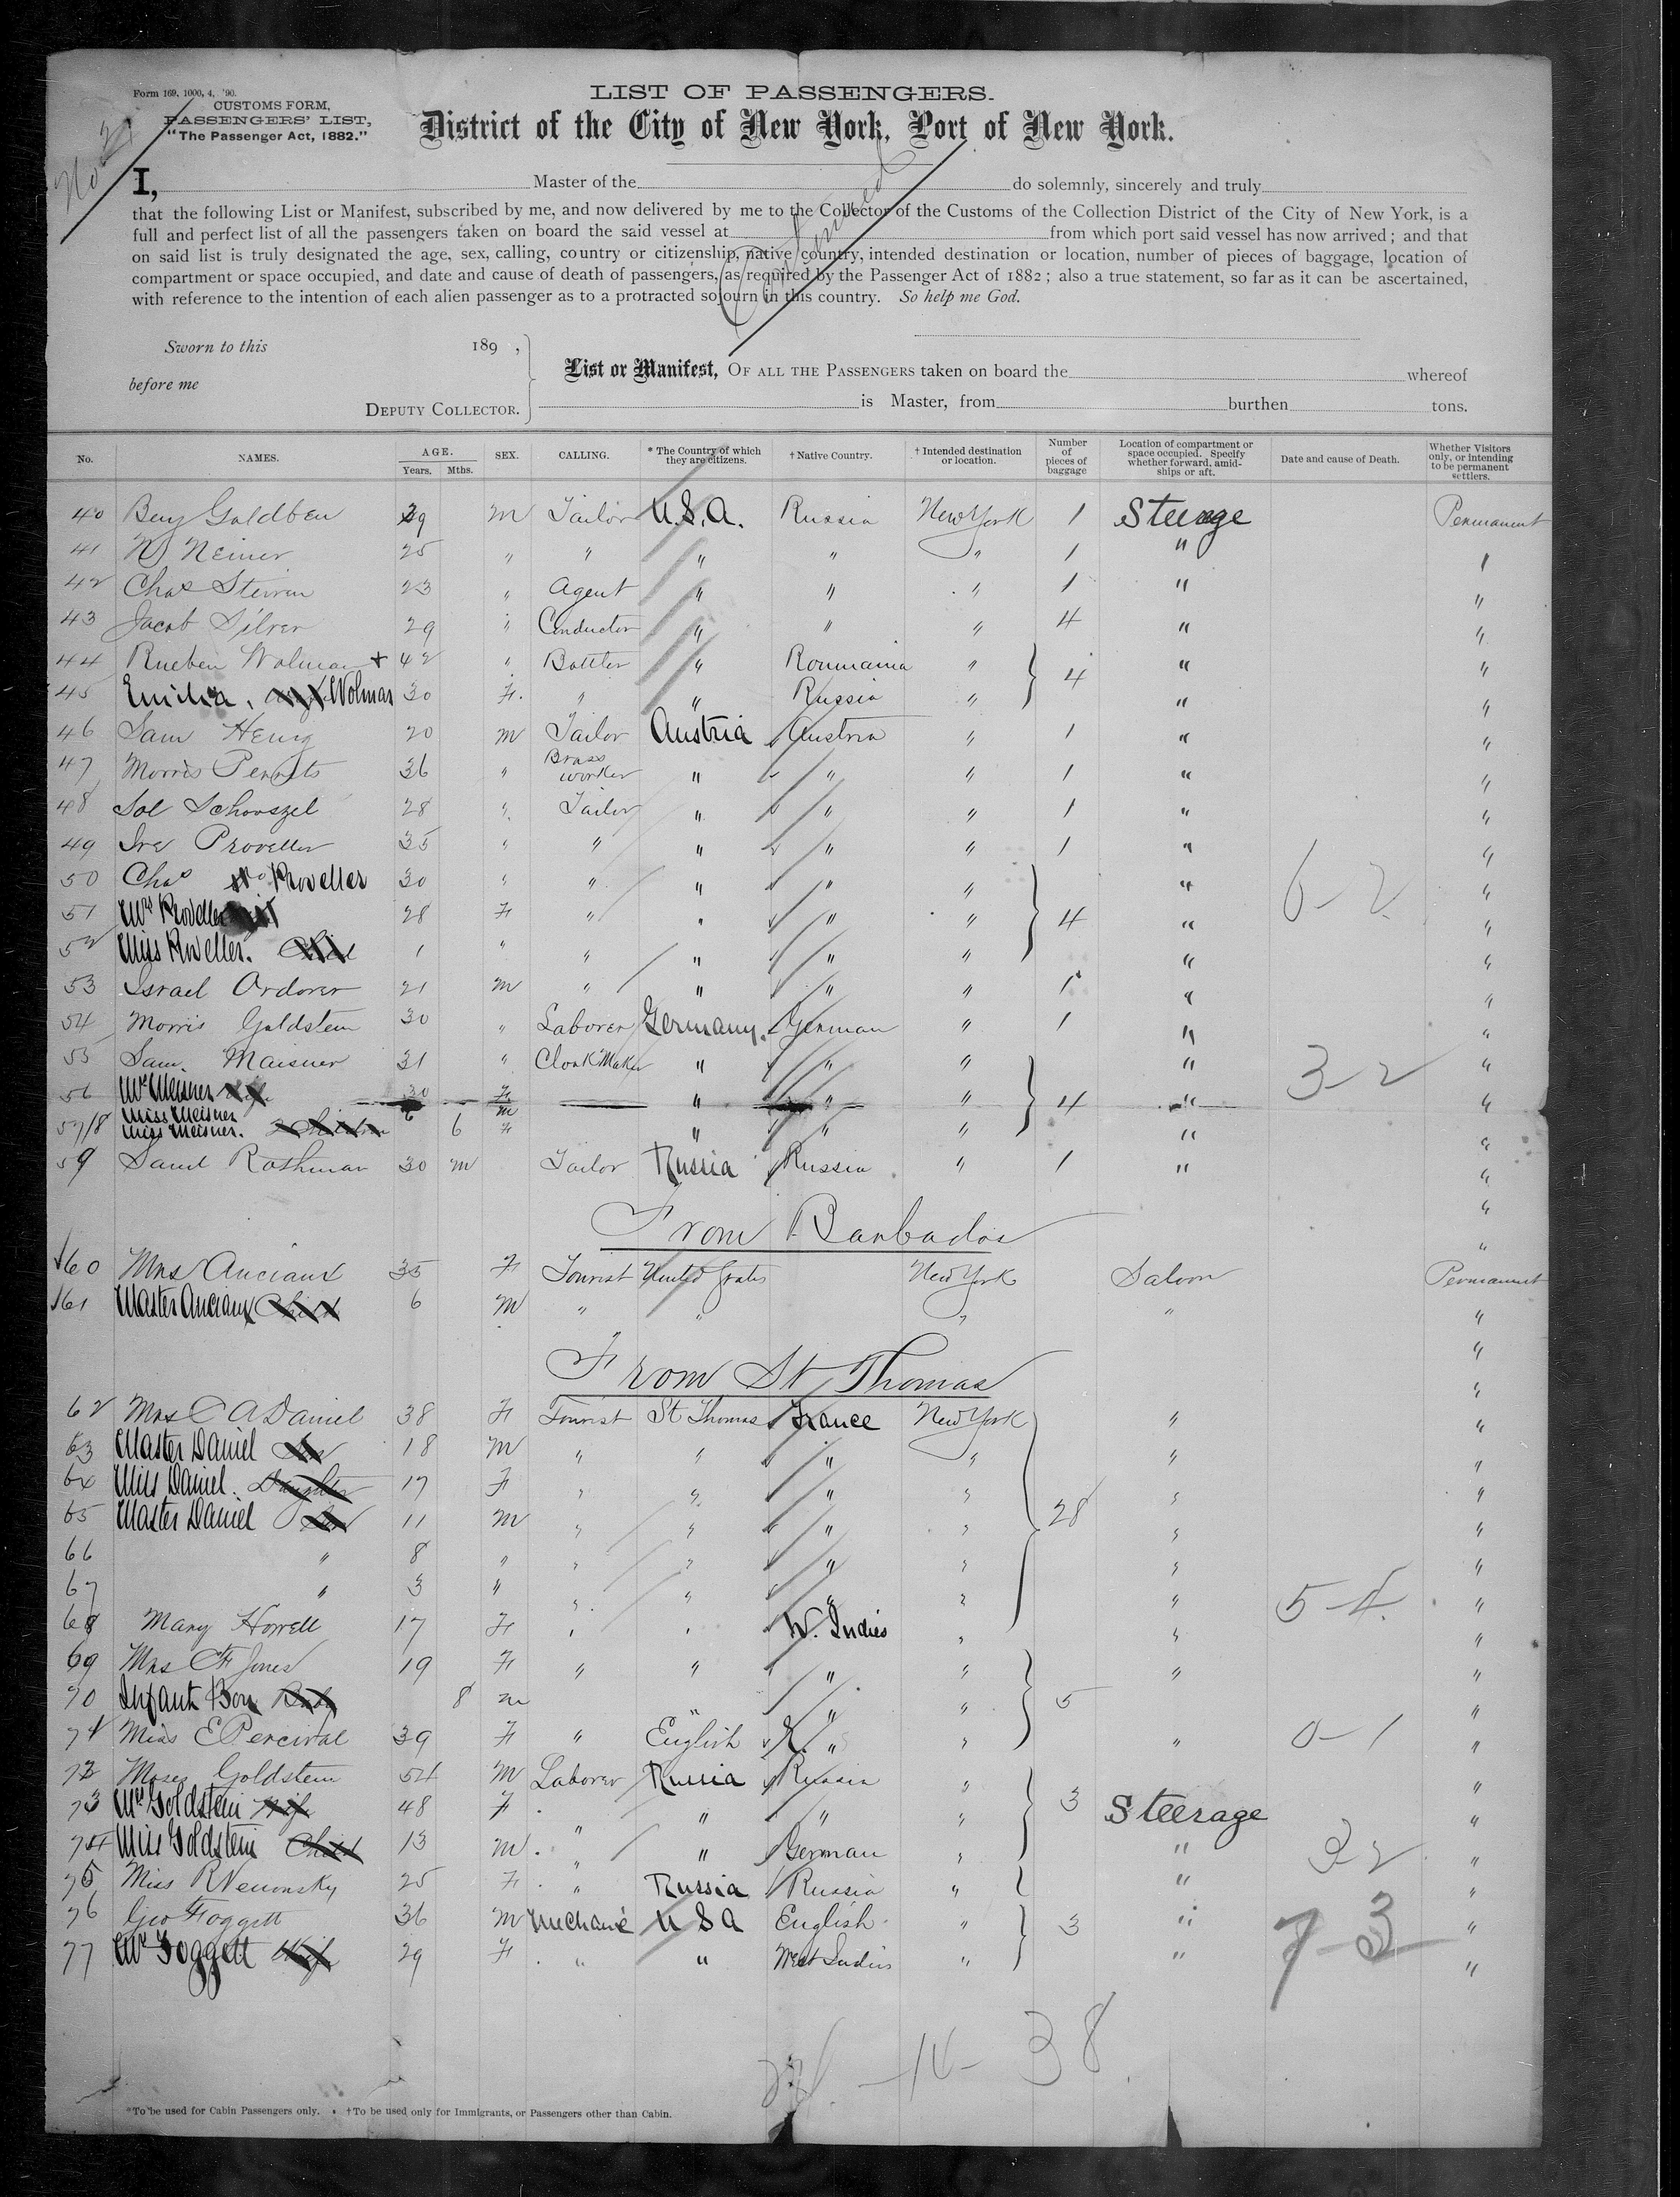 Form 169, 1000, 4, '90.
CUSTOMS FORM,
PASSENGERS' LIST,
"The Passenger Act, 1882."
LIST OF PASSENGERS.
District of the City of New York, Port of New York.
I, Master of the do solemnly, sincerely and truly
that the following List or Manifest, subscribed by me, and now delivered by me to the Collector of the Customs of the Collection District of the City of New York, is a
full and perfect list of all the passengers taken on board the said vessel at from which port said vessel has now arrived; and that
on said list is truly designated the age, sex, calling, country or citizenship, native country, intended destination or location, number of pieces of baggage, location of
compartment or space occupied, and date and cause of death of passengers, as required by the Passenger Act of 1882; also a true statement, so far as it can be ascertained,
with reference to the intention of each alien passenger as to a protracted sojourn in this country. So help me God.
Continued
Sworn to this 189 ,
before me
DEPUTY COLLECTOR.
List or Manifest, OF ALL THE PASSENGERS taken on board the whereof
is Master, from burthen tons.
No. NAMES. AGE. Years. Mths. SEX. CALLING. * The Country of which they are citizens. † Native Country. † Intended destination or location. Number of pieces of baggage Location of compartment or space occupied. Specify whether forward, amidships or aft. Date and cause of Death. Whether Visitors only, or intending to be permanent settlers.
40 Benj Goldben 29 M Tailor U.S.A. Russia New York 1 Steerage Permanent
41 N Neiner 25 " " " " " 1 " "
42 Chas 23 " Agent " " " 1 " "
43 Jacob Silver 29 " Conductor " " " 4 " "
44 Rueben Wolman + 42 " Bottler " Roumania " 4 " "
45 Emilia Wolman 30 F. " " Russia " " "
46 Sam Henig 20 M Tailor Austria Austria " 1 " "
47 Morris 36 " Brass worker " " " 1 " "
48 Sol Schorszel 28 " Tailor " " " 1 " "
49 Proveller 35 " " " " " 1 " "
50 Chas Proveller 30 " " " " " " "
51 Mrs Proveller 28 F " " " " 4 " "
52 Miss Proveller. 1 " " " " " " "
53 Israel Ordover 21 M " " " " 1 " "
54 Morris Goldstein 30 " Laborer Germany. German " 1 " "
55 Sam. Maisner 31 " Cloak Maker " " " " "
56 Mrs Meisner 30 F " " " 4 " "
57/8 Miss Meisner 6 M
Miss Meisner. 6 F " " " " "
59 Saml Rothman 30 M Tailor Russia Russia " 1 " "
6-2
3-2
From Barbados
60 Mrs Anciaux 35 F Tourist United States New York Saloon Permanent
61 Master Anciaux 6 M " " " " "
From St Thomas
62 Mrs C A Daniel 38 F Tourist St Thomas France New York " "
63 Master Daniel 18 M " " " " " "
64 Miss Daniel. 17 F " " " " " "
65 Master Daniel 11 M " " " " 28 " "
66 " 8 " " " " " " "
67 " 3 " " " " " " "
68 Mary Howell 17 F " " W. Indies " " "
69 Mrs C F Jones 19 F " " " " " "
70 Infant Boy 8 M " " " 5 "
71 Miss E Percival 39 F " English " " " 0-1 "
72 Moses Goldstein 54 M Laborer Russia Russia " "
73 Mrs Goldstein 48 F " " " " 3 Steerage "
74 Miss Goldstein 13 M " " German " " "
75 Miss R 25 F " Russia Russia " " "
76 Geo Foggett 36 M Mechanic U S A English " 3 " "
77 Mrs Foggett 29 F " " West Indies " " "
7-3
38
*To be used for Cabin Passengers only. † To be used only for Immigrants, or Passengers other than Cabin.